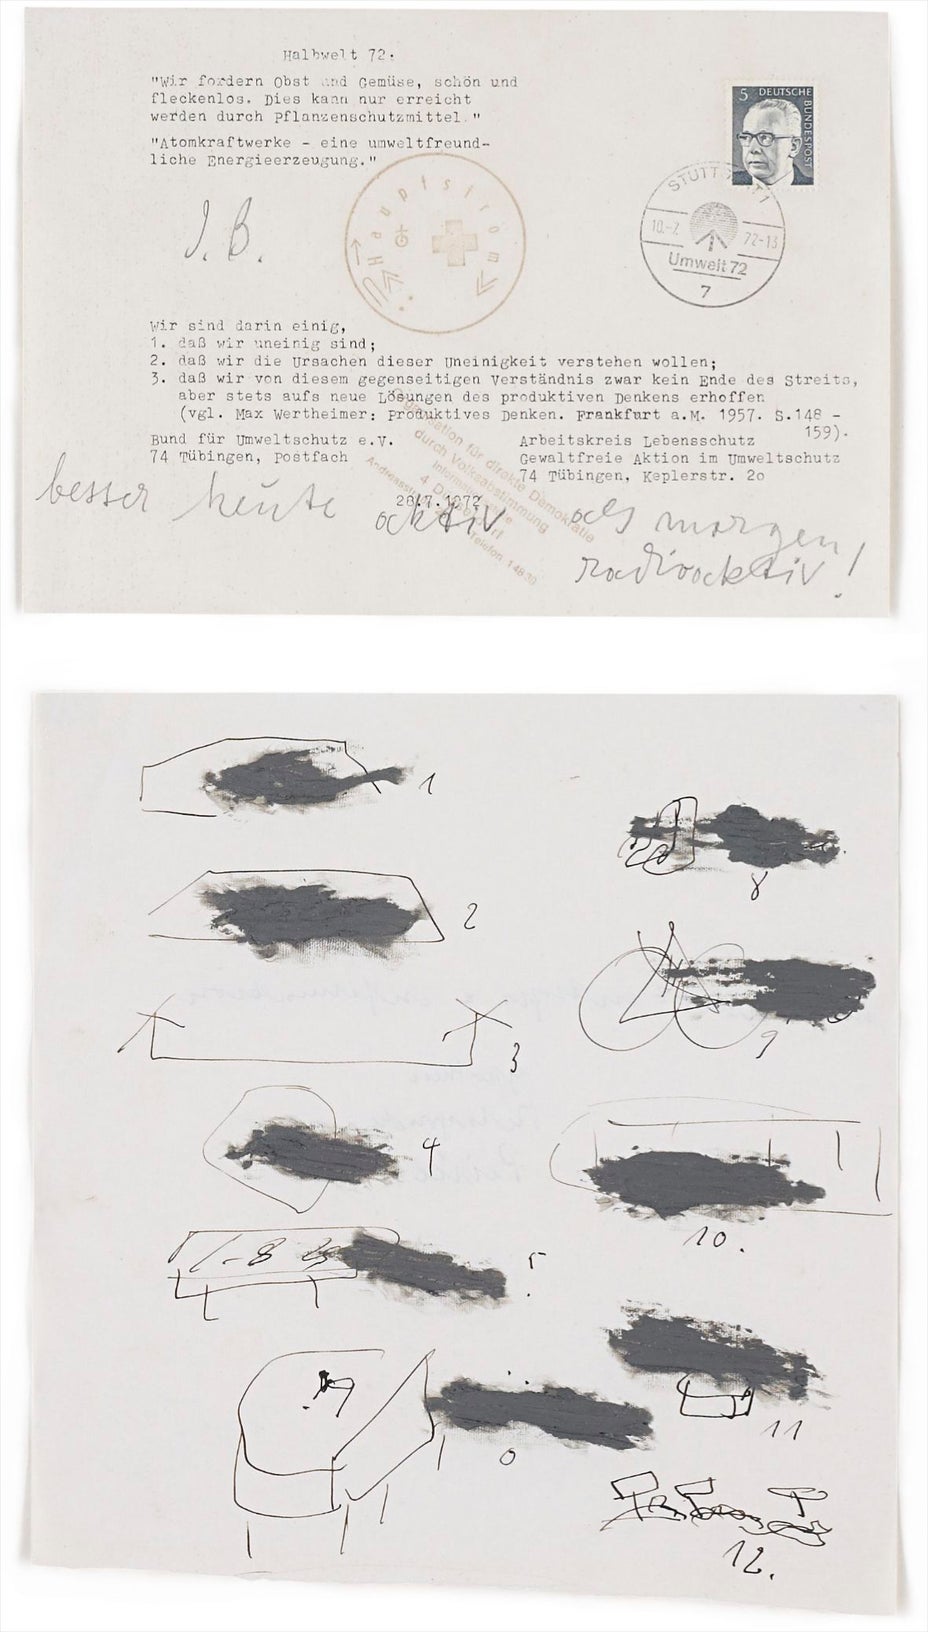 Halbwelt 72.
"Wir fordern Obst und Gemüse, schön und
fleckenlos. Dies kann nur erreicht
werden durch Pflanzenschutzmittel."
"Atomkraftwerke - eine umweltfreund-
liche Energieerzeugung."
5 DEUTSCHE
BUNDESPOST
Hauptstrom
J. B.
STUTT
10.-7. 72-13
Umwelt 72
7
Wir sind darin einig,
1. daß wir uneinig sind;
2. daß wir die Ursachen dieser Uneinigkeit verstehen wollen;
3. daß wir von diesem gegenseitigen Verständnis zwar kein Ende des Streits,
aber stets aufs neue Lösungen des produktiven Denkens erhoffen
(vgl. Max Wertheimer: Produktives Denken. Frankfurt a.M. 1957. S.148 -
159).
Bund für Umweltschutz e.V.
74 Tübingen, Postfach
Arbeitskreis Lebensschutz
Gewaltfreie Aktion im Umweltschutz
74 Tübingen, Keplerstr. 2o
Organisation für direkte Demokratie
durch Volksabstimmung
4
Telefon
7.1972
besser heute aktiv als morgen
radioaktiv!
1
2
3
4
5
1-8
0
8
9
10.
11
12.